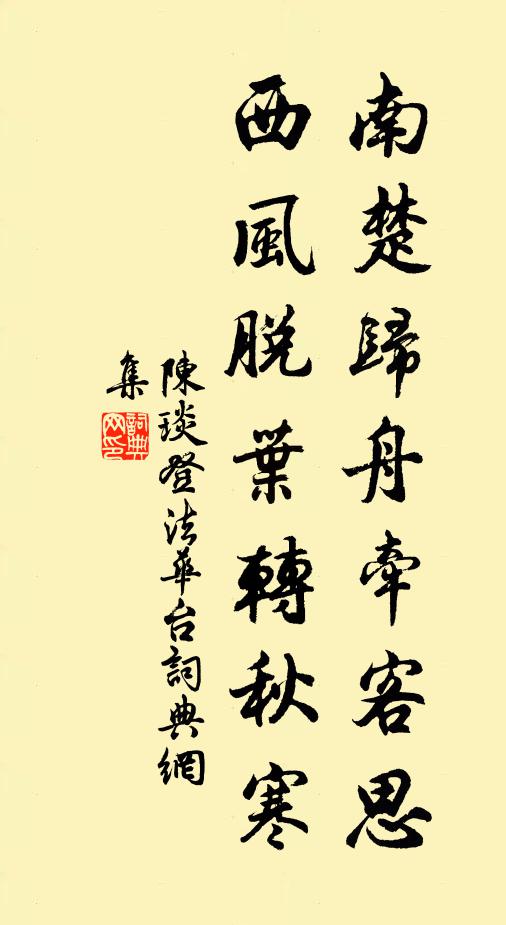 南楚歸舟牽客思
西風脱葉轉秋寒
陳琰登法華台詞典網
集
詞典
网印